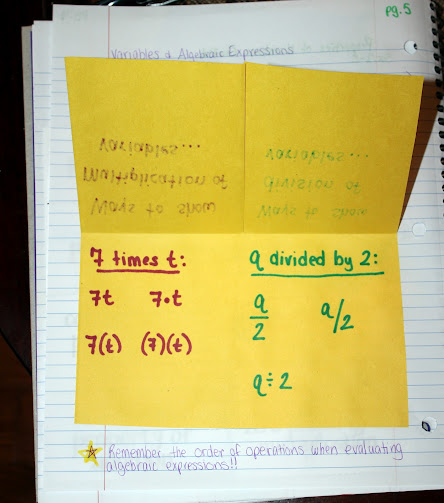 pg.5
Variables & Algebraic Expressions
Ways to show
Multiplication of
variables...
Ways to show
division of
variables...
7 times t:
7t 7·t
7(t) (7)(t)
q divided by 2:
q/2 q/2
q÷2
Remember the order of operations when evaluating
algebraic expressions!!